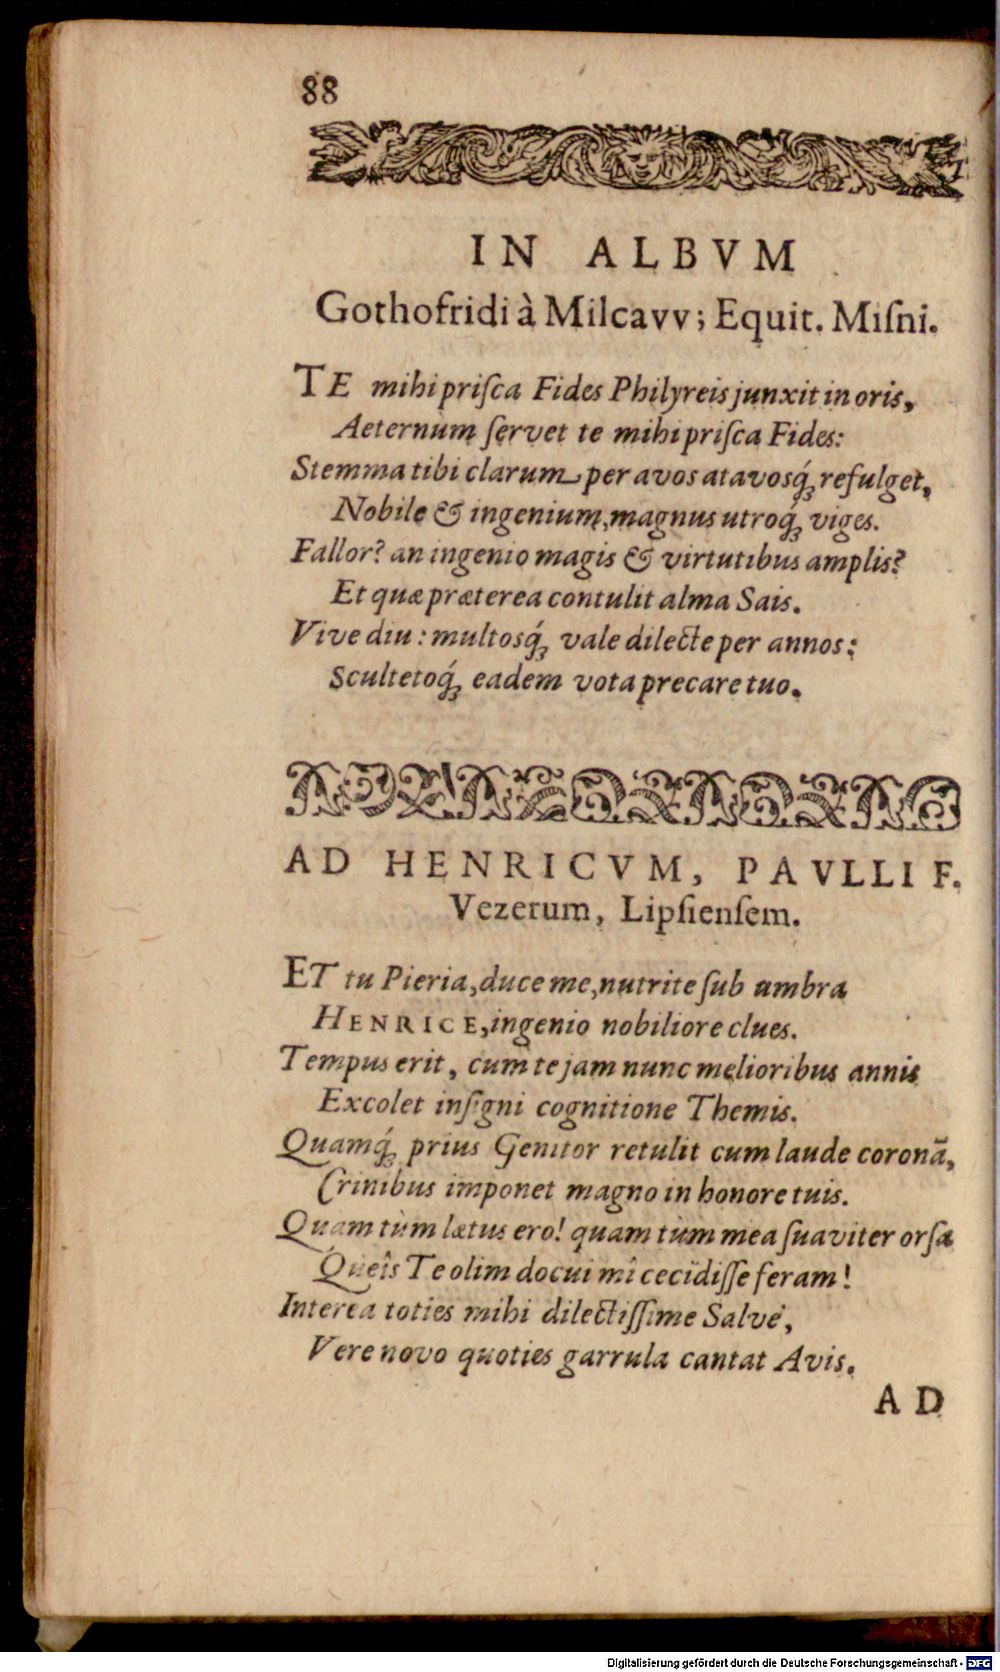 88
IN ALBVM
Gothofridi à Milcavv; Equit. Miſni.
TE mihi priſca Fides Philyreis junxit in oris,
Aeternùm ſervet te mihi priſca Fides:
Stemma tibi clarum per avos atavosq́; refulget,
Nobile & ingenium, magnus utroq́; viges.
Fallor? an ingenio magis & virtutibus amplis?
Et quæ præterea contulit alma Sais.
Vive diu: multosq́; vale dilecte per annos:
Scultetoq́; eadem vota precare tuo.
AD HENRICVM, PAVLLI F.
Vezerum, Lipſienſem.
ET tu Pieria, duce me, nutrite ſub umbra
HENRICE, ingenio nobiliore clues.
Tempus erit, cùm te jam nunc melioribus annis
Excolet inſigni cognitione Themis.
Quamq́; prius Genitor retulit cum laude coronā,
Crinibus imponet magno in honore tuis.
Quam tùm lætus ero! quam tùm mea ſuaviter orſa
Queîs Te olim docui mî cecidiſſe feram!
Interea toties mihi dilectiſſime Salve,
Vere novo quoties garrula cantat Avis.
AD
Digitalisierung gefördert durch die Deutsche Forschungsgemeinschaft - DFG